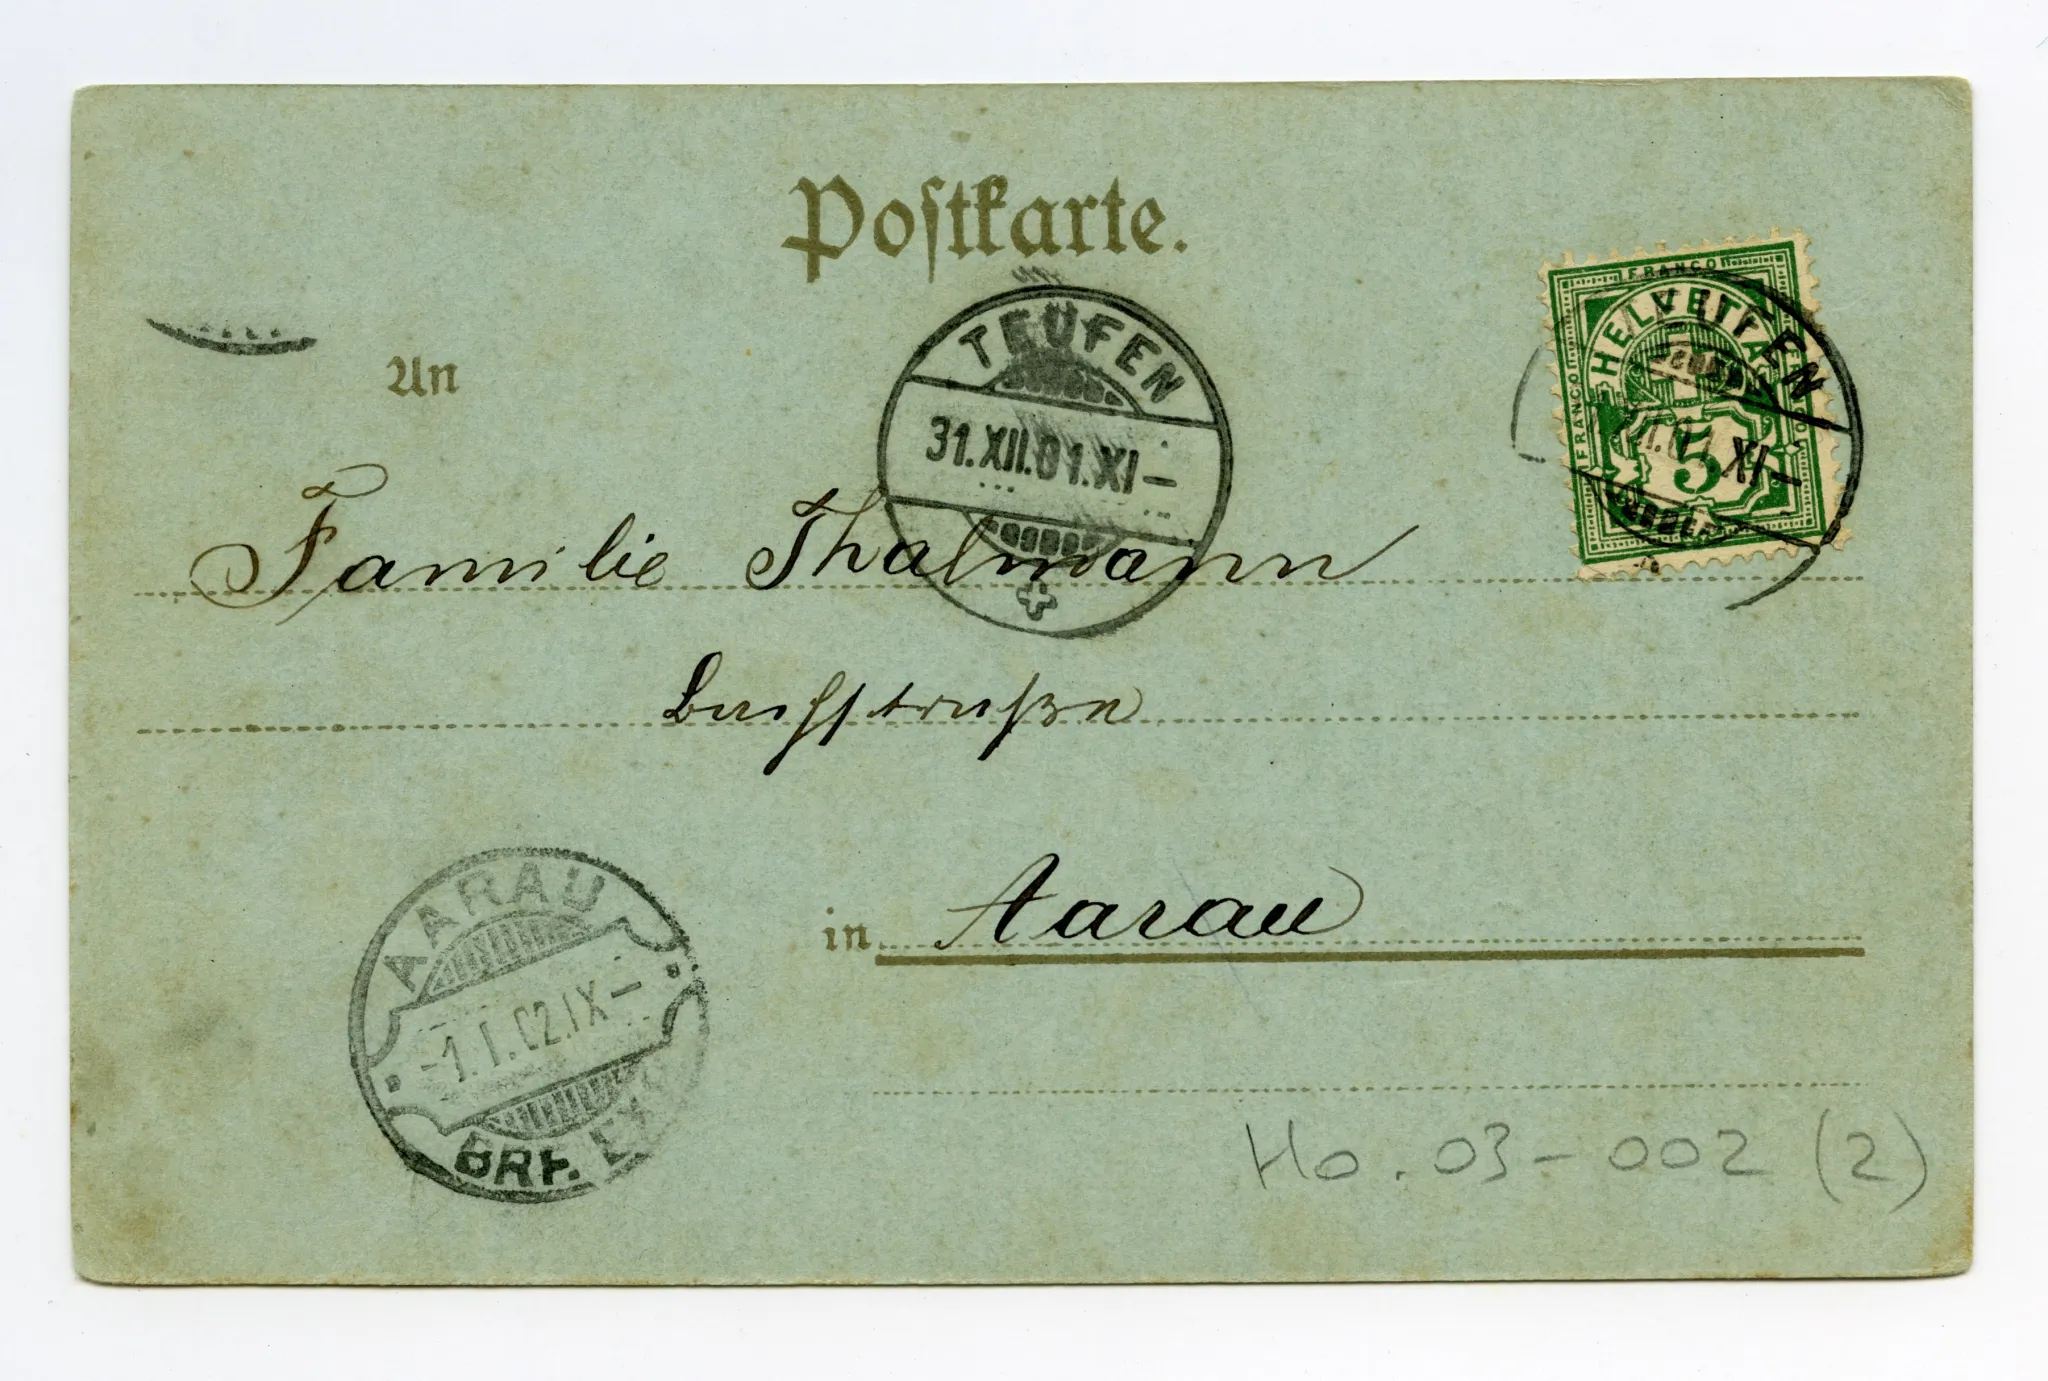 Postkarte.
An
TEUFEN
31.XII.01.XI–
FRANCO
HELVETIA
FRANCO
5
EN
XI–
Familie Thalmann
Bachstraße
in Aarau
AARAU
-1.I.02.IX–
BRF. EX
Ho.03-002 (2)